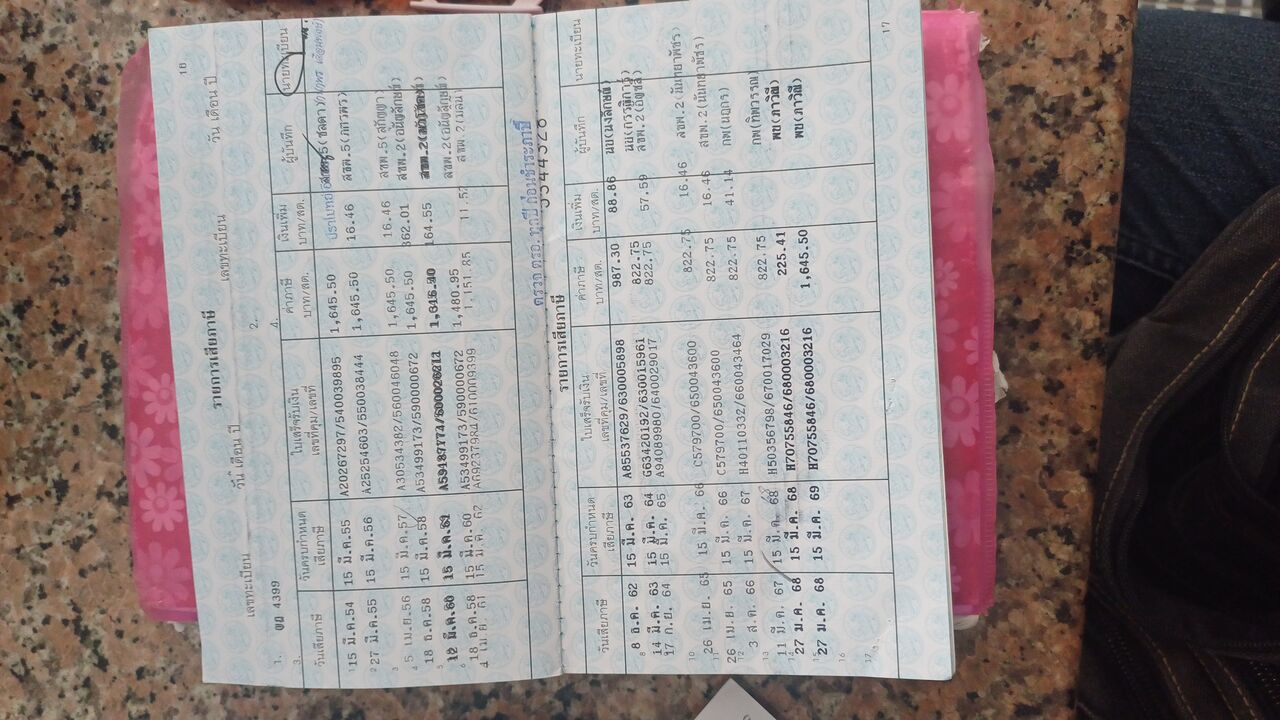 16
รายการเสียภาษี
เลขทะเบียน วัน เดือน ปี เลขทะเบียน วัน เดือน ปี
1. 4399 2.
3. 4.
วันเสียภาษี วันครบกำหนดเสียภาษี ใบเสร็จรับเงิน เล่มที่คุม/เลขที่ ค่าภาษี บาท/สต. เงินเพิ่ม บาท/สต. ผู้บันทึก นายทะเบียน
1 15 มี.ค.54 15 มี.ค.55 A20267297/540039895 1,645.50
2 27 มี.ค.55 15 มี.ค.56 A25254603/550038444 1,645.50 16.46 สขพ.5(ภัทรพร)
3
4 5 เม.ย.56 15 มี.ค.57 A30534382/560046048 1,645.50 16.46 สขพ.5(สุกัญญา)
18 ธ.ค.58 15 มี.ค.58 A53499173/590000672 1,645.50 362.01
5 12 มี.ค.60 15 มี.ค.61 164.55
6 18 ธ.ค.58 15 มี.ค.60 A53499173/590000672 1,480.95
4 เม.ย.61 15 มี.ค.62 A69237984/610009399 1,151.85 11.52 สขพ.2(มลนา)
5544328
ตรวจ ตรอ. ทุกปี ก่อนชำระภาษี
รายการเสียภาษี
วันเสียภาษี วันครบกำหนดเสียภาษี ใบเสร็จรับเงิน เล่มที่คุม/เลขที่ ค่าภาษี บาท/สต. เงินเพิ่ม บาท/สต. ผู้บันทึก นายทะเบียน
8 ธ.ค. 62 15 มี.ค. 63 A85537629/630005898 987.30 88.86
8 14 มี.ค. 63 15 มี.ค. 64 G63420192/630015961 822.75
17 ก.ย. 64 15 มี.ค. 65 A94089980/640029017 822.75 57.59 สขพ.2(อัญชลี)
10 26 เม.ย. 65 15 มี.ค. 66 C579700/650043600 822.75 16.46
11 26 เม.ย. 65 15 มี.ค. 66 C579700/650043600 822.75 16.46 สขพ.2(นันทยาพัชร)
12 3 ส.ค. 66 15 มี.ค. 67 H40110332/600043464 822.75 41.14 กพ(นฤภร)
13 11 มี.ค. 67 15 มี.ค. 68 H50356798/670017029 822.75 กพ(ทิพวรรณ
14 27 ม.ค. 68 15 มี.ค. 68 H70755846/680003216 225.41 พย(ภาวิณี)
15 27 ม.ค. 68 15 มี.ค. 69 H70755846/680003216 1,645.50 พย(ภาวิณี)
16
17
17